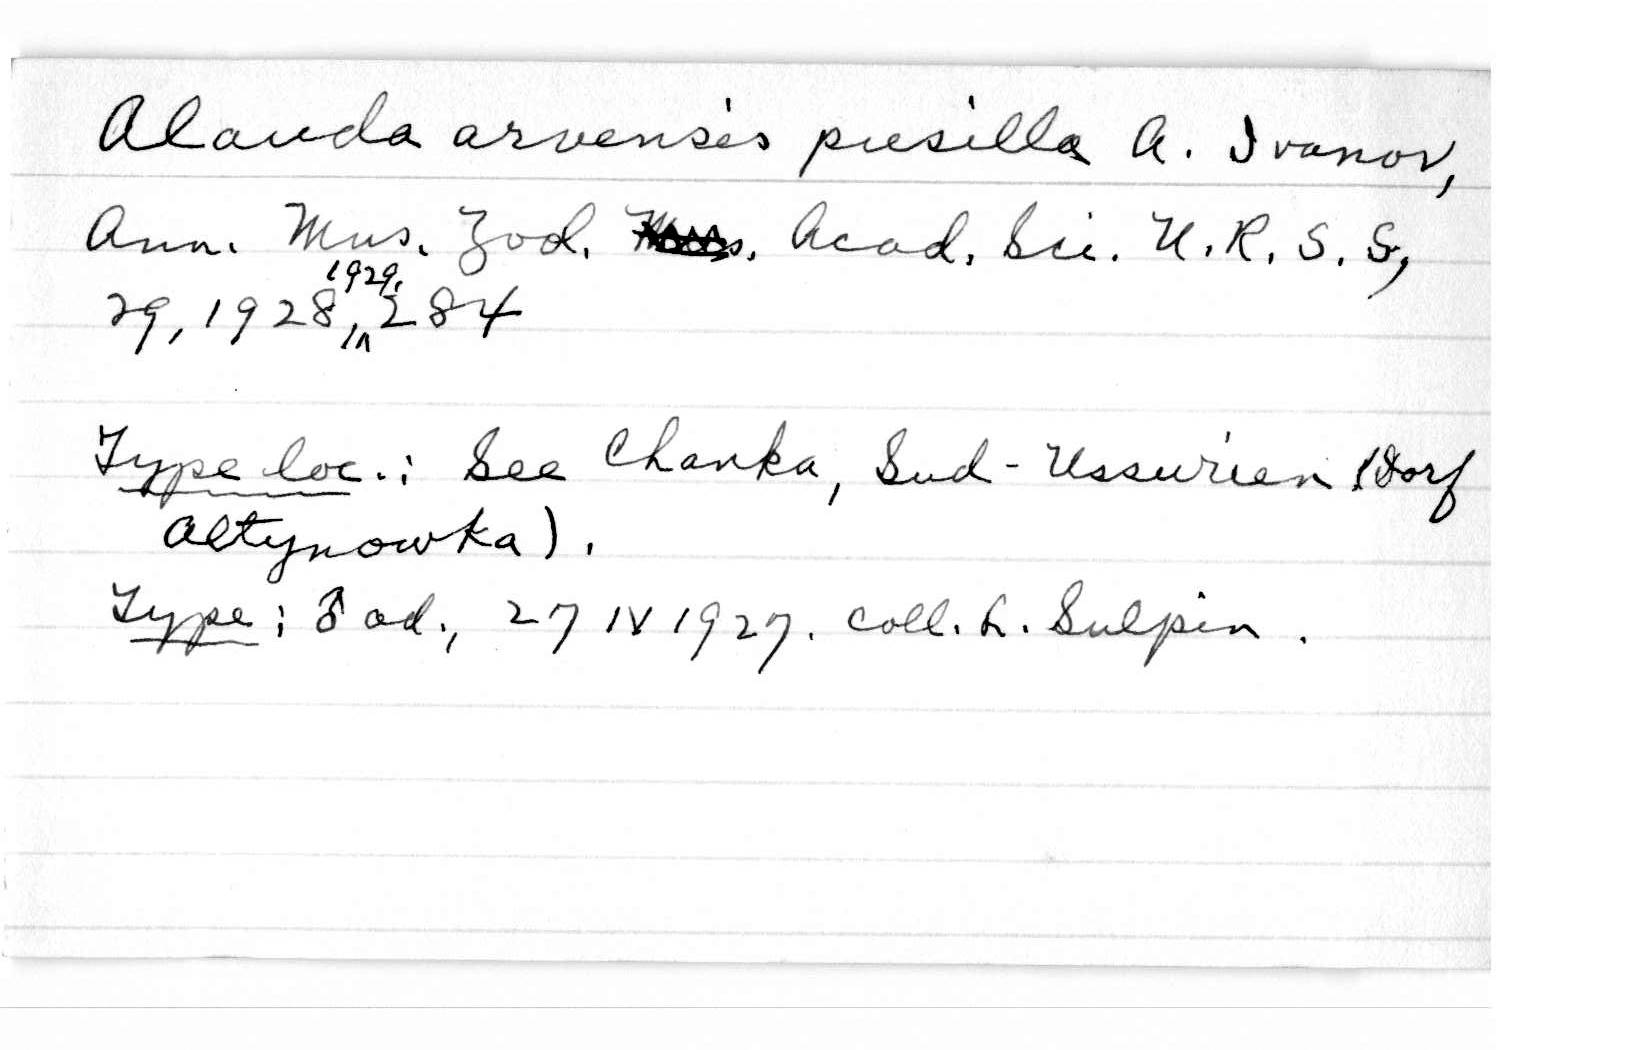 Alauda arvensis pusilla A. Ivanov,
Ann. Mus. Zool. Acad. Sci. U. R. S. S,
29, 1928, 1929, 284
Type loc.: See Chanka, Sud-Ussurien (Dorf
Altynowka).
Type: ♂ ad., 27 IV 1927. coll. L. Sulpin.